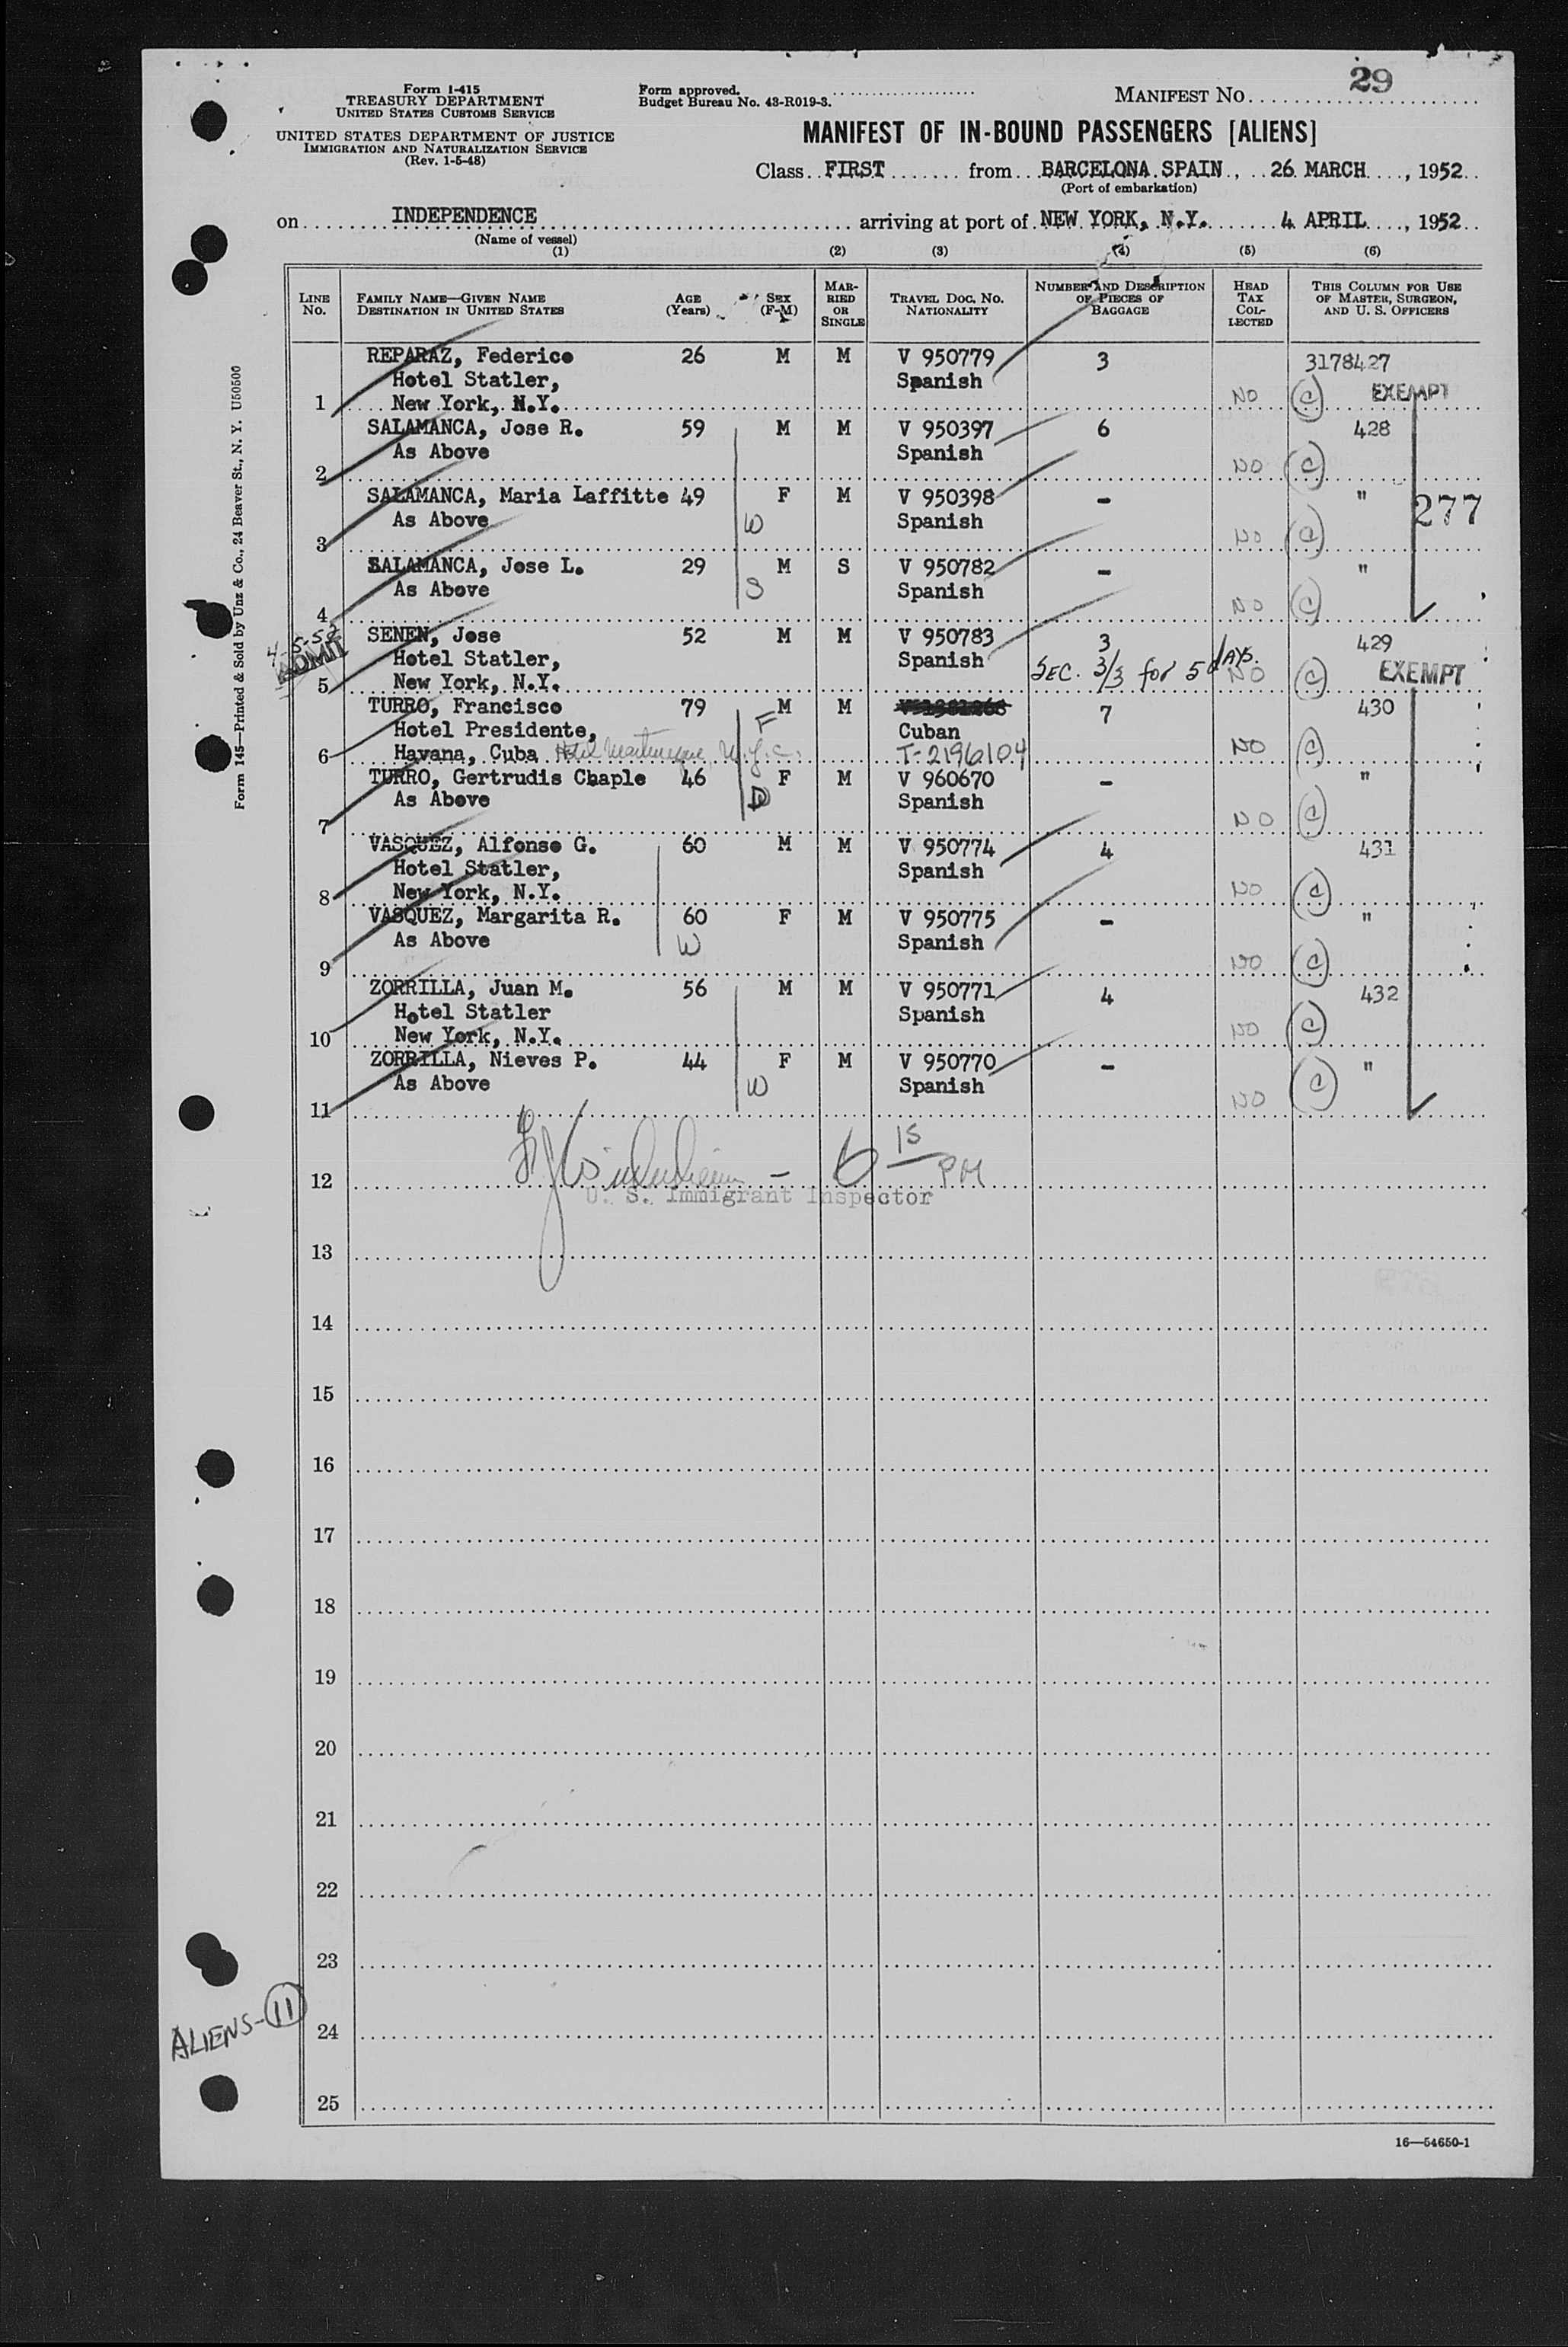 29
Form I-415
TREASURY DEPARTMENT
UNITED STATES CUSTOMS SERVICE
UNITED STATES DEPARTMENT OF JUSTICE
IMMIGRATION AND NATURALIZATION SERVICE
(Rev. 1-5-48)
Form approved.
Budget Bureau No. 43-R019-3.
MANIFEST NO.
MANIFEST OF IN-BOUND PASSENGERS [ALIENS]
Class FIRST from BARCELONA SPAIN, 26 MARCH, 1952
(Port of embarkation)
on INDEPENDENCE arriving at port of NEW YORK, N.Y. 4 APRIL, 1952
(Name of vessel)
(1) (2) (3) (4) (5) (6)
LINE NO. FAMILY NAME—GIVEN NAME DESTINATION IN UNITED STATES AGE (Years) SEX (F-M) MARRIED OR SINGLE TRAVEL DOC. NO. NATIONALITY NUMBER AND DESCRIPTION OF PIECES OF BAGGAGE HEAD TAX COLLECTED THIS COLUMN FOR USE OF MASTER, SURGEON, AND U. S. OFFICERS
REPARAZ, Federico 26 M M V 950779 3 3178427
Hotel Statler, Spanish NO C EXEMPT
1 New York, N.Y.
SALAMANCA, Jose R. 59 M M V 950397 6 428
As Above Spanish
2 NO C
SALAMANCA, Maria Laffitte 49 F M V 950398 - " 277
As Above W Spanish
3 NO C
SALAMANCA, Jose L. 29 M S V 950782 - "
As Above S Spanish
4 NO C
4-5-52 SENEN, Jose 52 M M V 950783 3 429
ADMIT Hotel Statler, Spanish SEC. 3/3 for 5 days. NO C EXEMPT
5 New York, N.Y.
TURRO, Francisco 79 F M M 7 430
Hotel Presidente, Cuban
6 Havana, Cuba Hotel Martinique, N.Y.C. T-2196104 NO C
TURRO, Gertrudis Chaple 46 F M V 960670 - "
As Above Spanish
7 NO C
VASQUEZ, Alfonso G. 60 M M V 950774 4 431
Hotel Statler, Spanish
8 New York, N.Y. NO C
VASQUEZ, Margarita R. 60 F M V 950775 - "
As Above W Spanish
9 NO C
ZORRILLA, Juan M. 56 M M V 950771 4 432
Hotel Statler Spanish
10 New York, N.Y. NO C
ZORRILLA, Nieves P. 44 F M V 950770 - "
As Above W Spanish
11 NO C
12 - 6 15 PM
U. S. Immigrant Inspector
13
14
15
16
17
18
19
20
21
22
23
24
25
ALIENS-11
Form 145—Printed & Sold by Unz & Co., 24 Beaver St., N. Y. U50500
16—54650-1